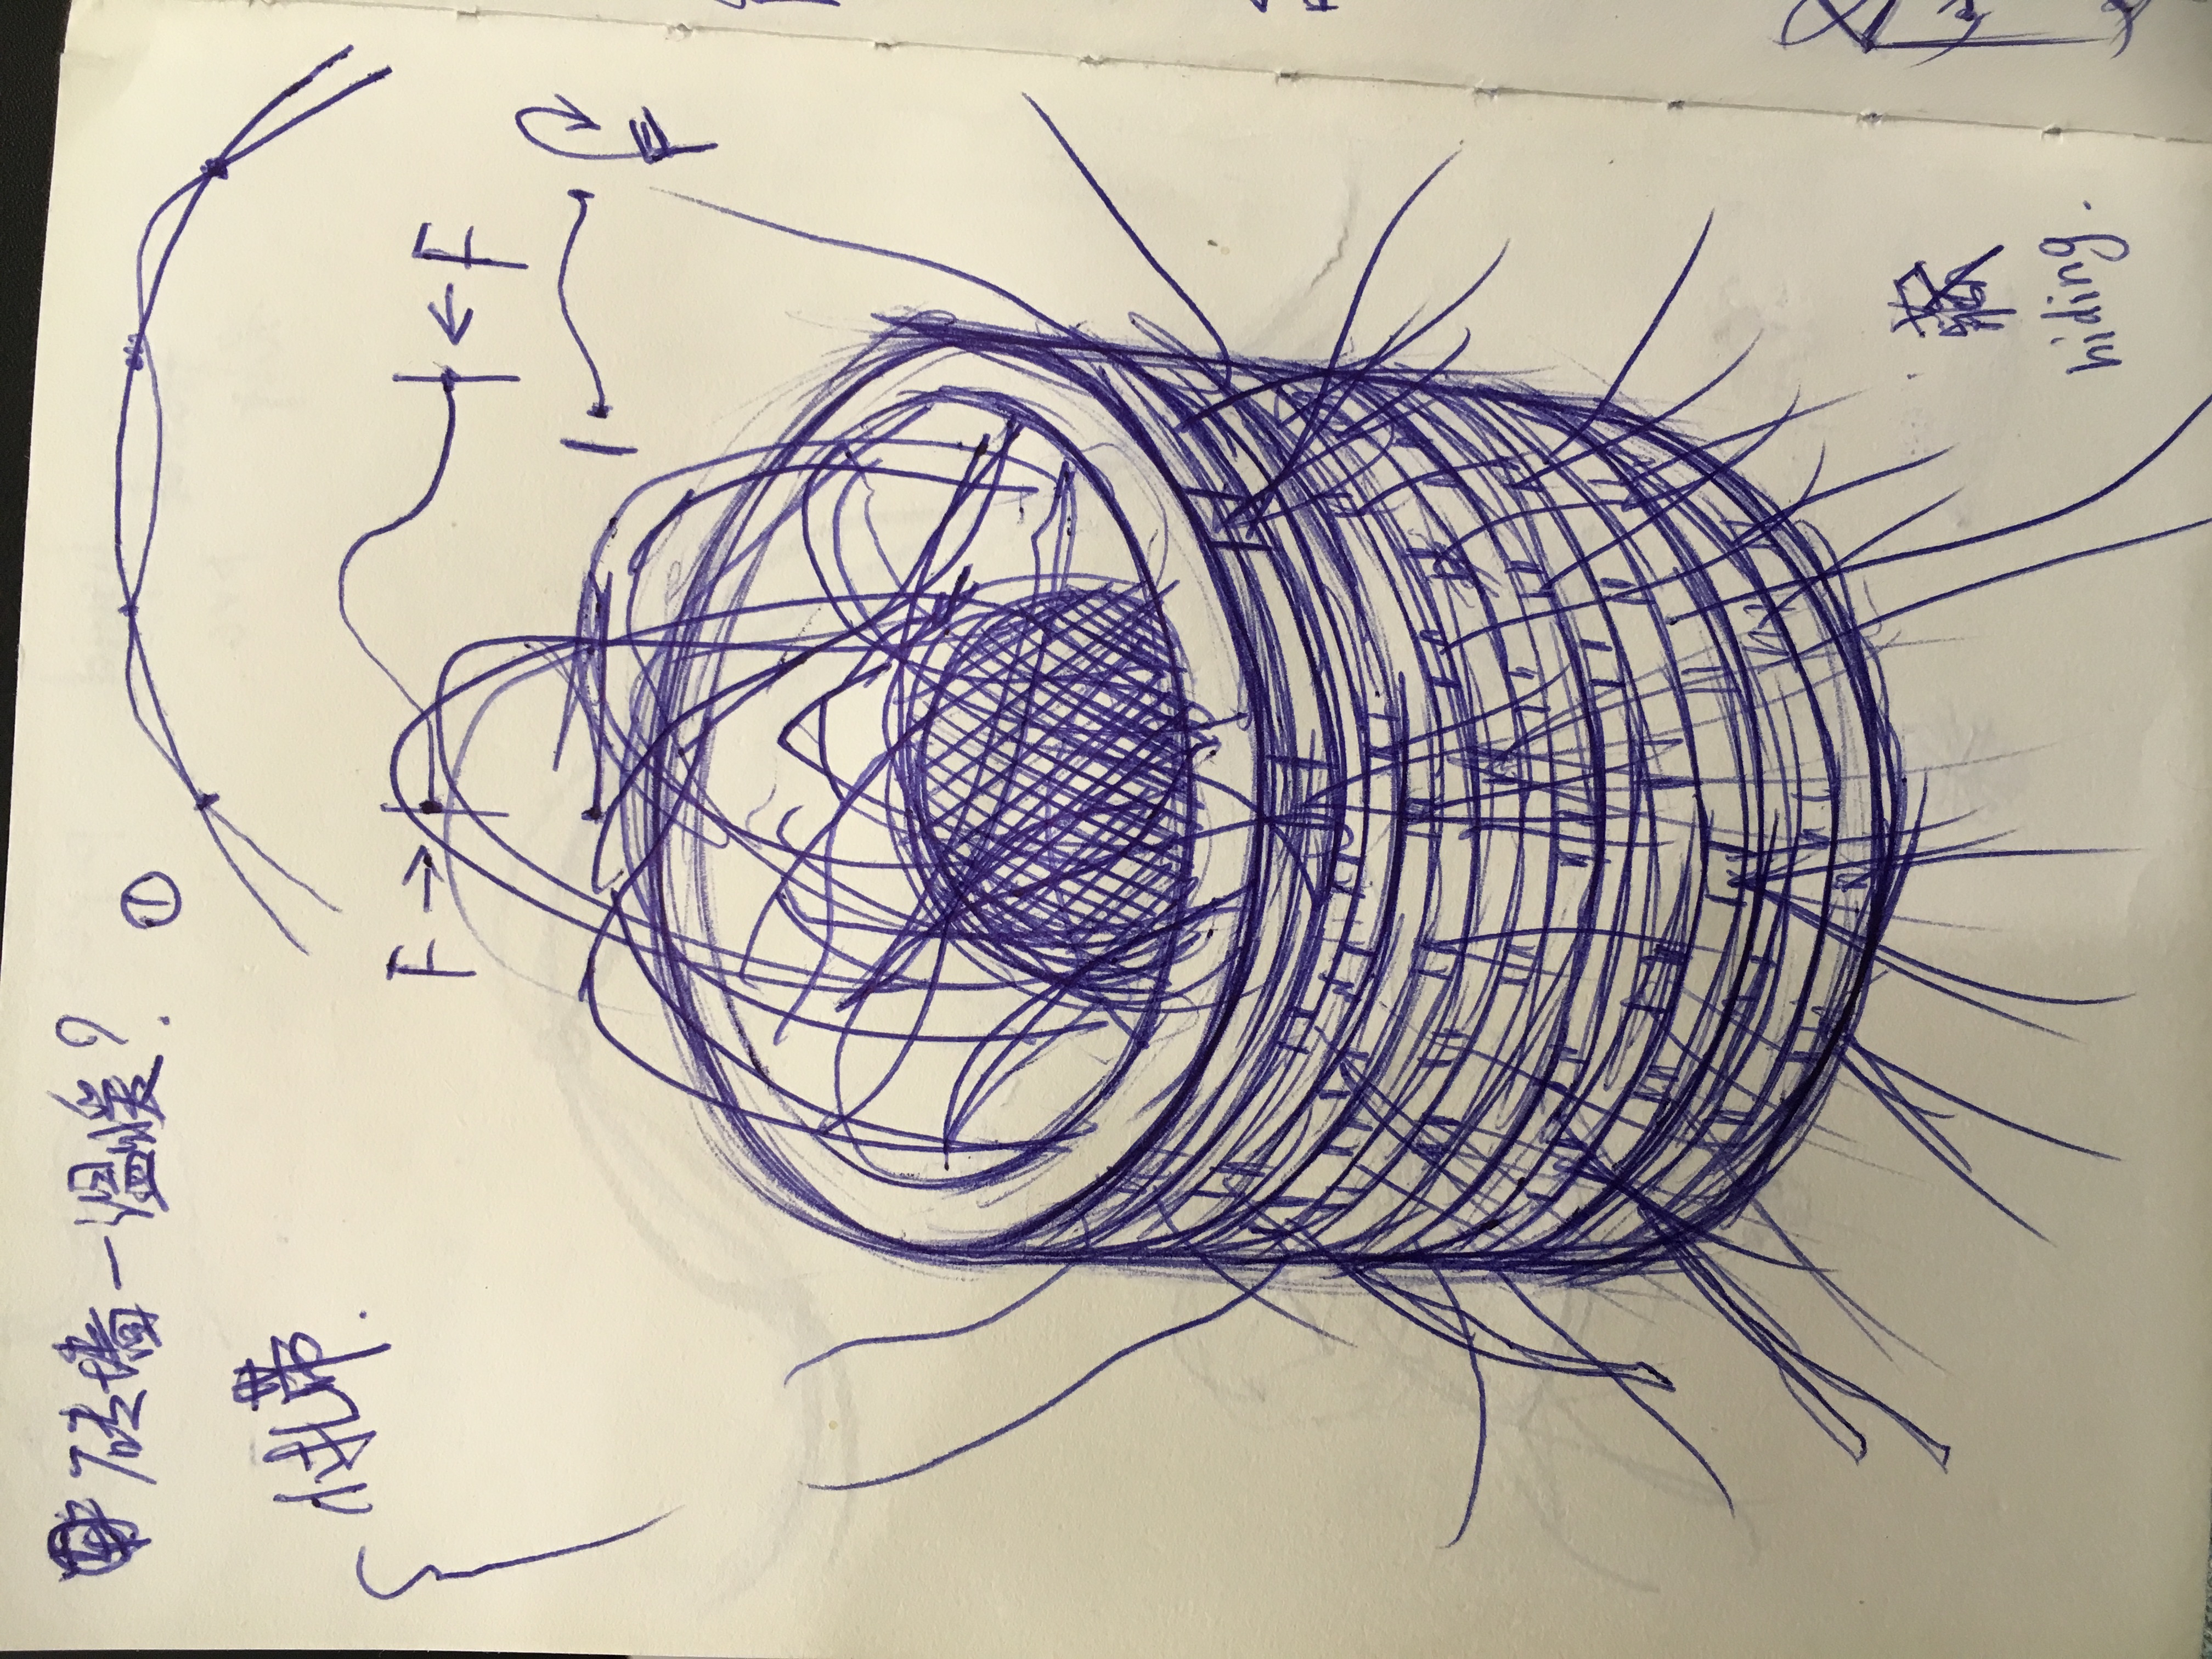 砖墙—温暖?
①
小扎带.
F → ← F
F
藏
hiding.